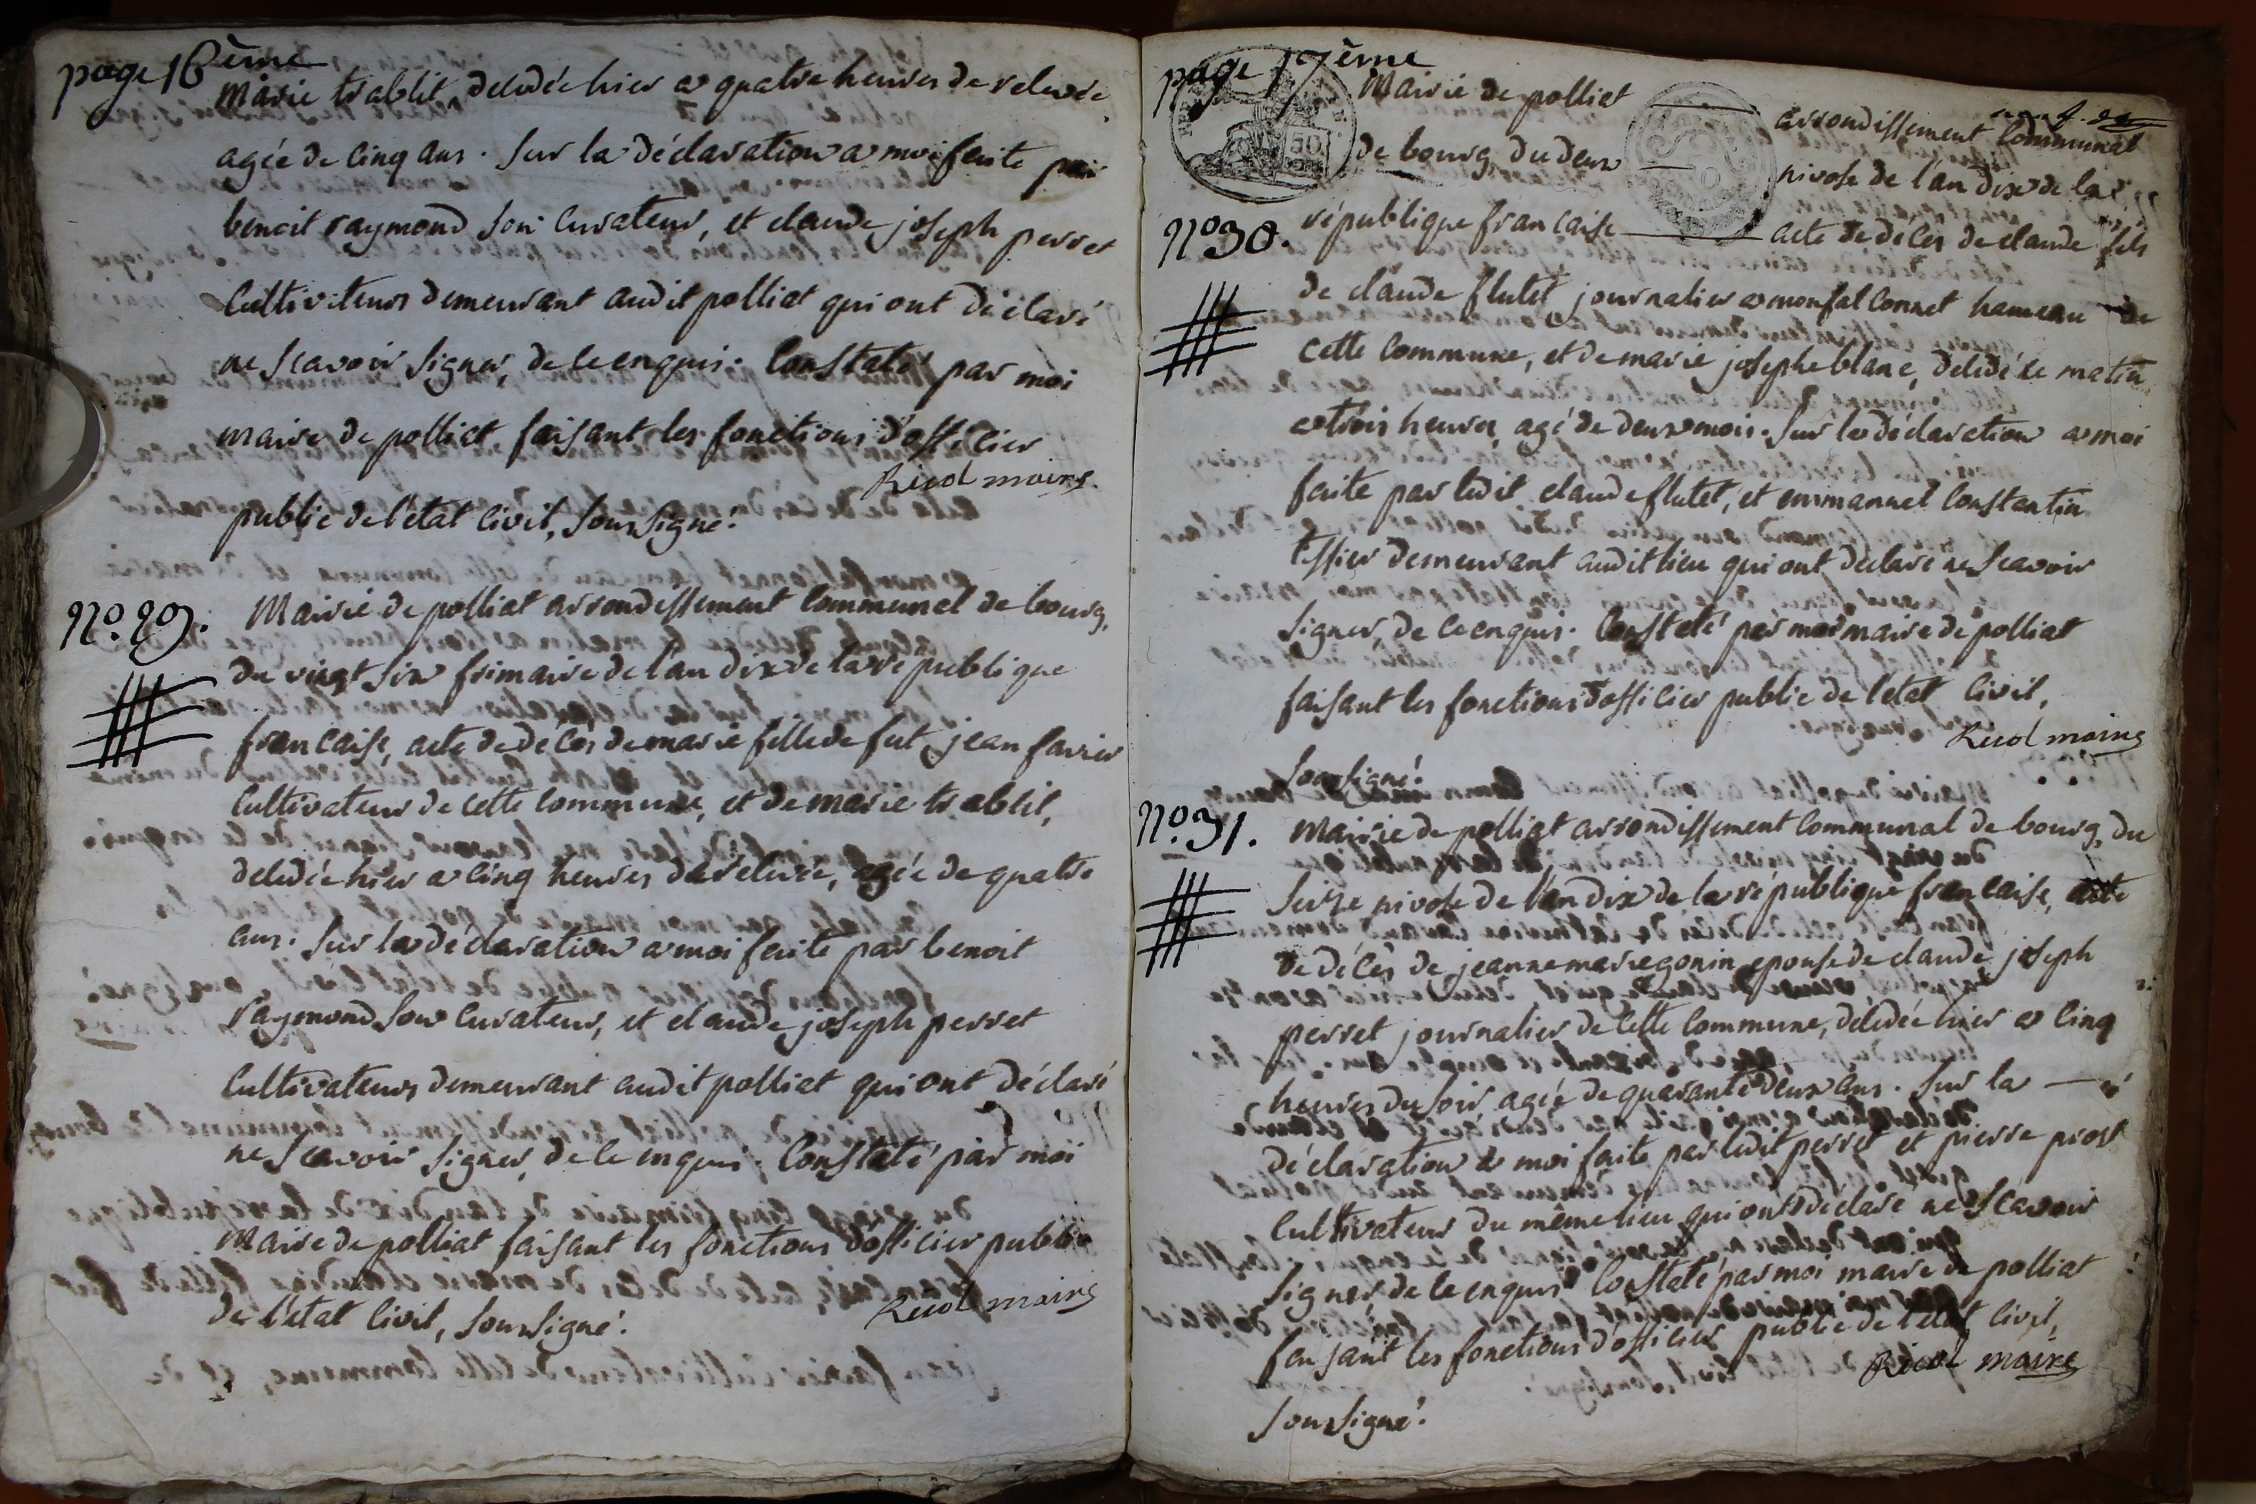 page 16ème
marie trablit, décédée hier a quatre heures de relevée,
agée de cinq ans. Sur la déclaration a moi faite par
benoit raymond son curateur, et claude joseph perret
cultivateurs demeurant audit polliat qui ont déclaré
ne scavoir signer, de ce enquis. Constaté par moi
maire de polliat faisant les fonctions d'officier
public de l'état civil, soussigné.
Ricol maire
No. 29.
Mairie de polliat arrondissement communal de bourg,
du vingt six frimaire de l'an dix de la république
francaise, acte de décès de marie fille de fut jean favier
cultivateur de cette commune, et de marie trablit,
décédée hier a cinq heures de relevée, agée de quatre
ans. Sur la déclaration a moi faite par benoit
raymond son curateur, et claude joseph perret
cultivateurs demeurant audit polliat qui ont déclaré
ne scavoir signer, de ce enquis. Constaté par moi
maire de polliat faisant les fonctions d'officier public
de l'état civil, soussigné.
Ricol maire
page 17ème
Mairie de polliat arrondissement communal
de bourg, du deux nivose de l'an dix de la
No. 30.
république francaise acte de décès de claude fils
de claude flutet journalier a monfalconnet hameau de
cette commune, et de marie josephe blanc, décédé ce matin
a trois heures, agé de deux mois. Sur la déclaration a moi
faite par ledit claude flutet, et emmanuel constantin
tissier demeurant audit lieu qui ont déclaré ne scavoir
signer, de ce enquis. Constaté par moi maire de polliat
faisant les fonctions d'officier public de l'état civil,
soussigné.
Ricol maire
No. 31.
Mairie de polliat arrondissement communal de bourg, du
seize nivose de l'an dix de la république francaise, acte
de décès de jeanne marie gonin epouse de claude joseph
perret journalier de cette commune, décédée hier a cinq
heures du soir, agée de quarante deux ans. Sur la
déclaration a moi faite par ledit perret et pierre prost
cultivateur du même lieu qui ont déclaré ne scavoir
signer, de ce enquis. Constaté par moi maire de polliat
faisant les fonctions d'officier public de l'état civil,
soussigné.
Ricol maire